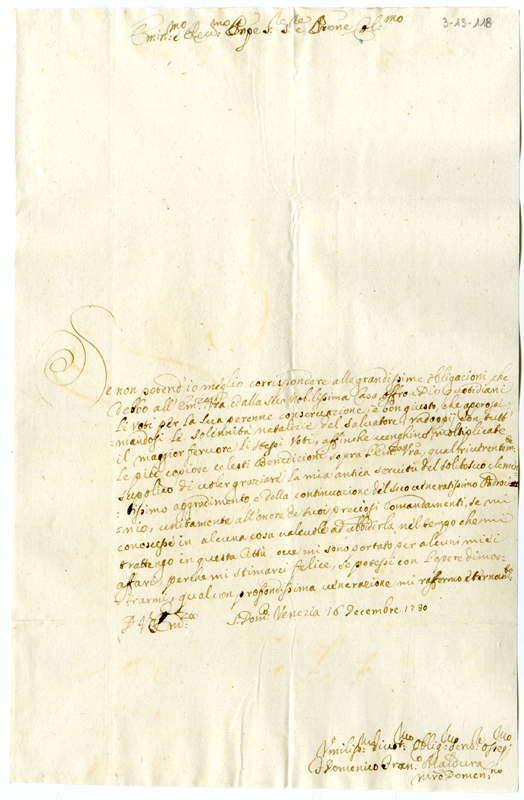 3-13-118
Emin.mo e Rev.mo Sig.re Pnpe S. Pne Col.mo
Se non potend'io meglio corrispondere alle grandissime obligazioni, che
debbo all'Em.za V.ra, e dalla Sua nobilissima Casa, offro a Dio quotidiani
li Voti per la Sua perenne conservazione, è ben giusto, che approssi
mandosi le Solennità natalizie del Salvatore radoppij con tutt'
il maggior fervore li stessi Voti, affinche venghino moltiplicate
le più copiose celesti Benedizioni sopra l'Em.za V.ra, qual riverentem.te
suplico di voler graziare la mia antica servitù del solito suo clemen
tissimo aggradimento e dalla continuazione del suo veneratissimo Padroci
nio, unitamente all'onore de suoi preziosi Comandamenti, se mi
conoscesse in alcuna cosa valevole ad ubbidirla, nel tempo che mi
trattengo in questa Città, ove mi sono portato per alcuni miei
affari, perche mi stimarei felice, se potessi con l'opere dimos
trarmi, qual con profondissima venerazione mi raffermo eternam.te
D. V. Em.za S. Dom.o Venezia 16 Decembre 1730
Umiliss.mo Divot.mo Oblig.mo Serv.re Osseq.mo
F. Domenico Fran.co